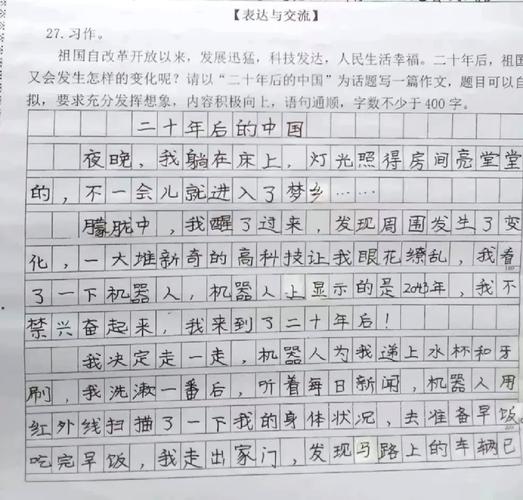 【表达与交流】
27. 习作。
祖国自改革开放以来，发展迅猛，科技发达，人民生活幸福。二十年后，祖国
又会发生怎样的变化呢？请以“二十年后的中国”为话题写一篇作文，题目可以自
拟，要求充分发挥想象，内容积极向上，语句通顺，字数不少于400字。
二十年后的中国
夜晚，我躺在床上，灯光照得房间亮堂堂
的，不一会儿就进入了梦乡……
朦胧中，我醒了过来，发现周围发生了变
化，一大堆新奇的高科技让我眼花缭乱，我看
了一下机器人，机器人上显示的是2043年，我不
禁兴奋起来，我来到了二十年后！
我决定走一走，机器人为我递上水杯和牙
刷，我洗漱一番后，听着每日新闻，机器人用
红外线扫描了一下我的身体状况，去准备早饭
吃完早饭，我走出家门，发现马路上的车辆已